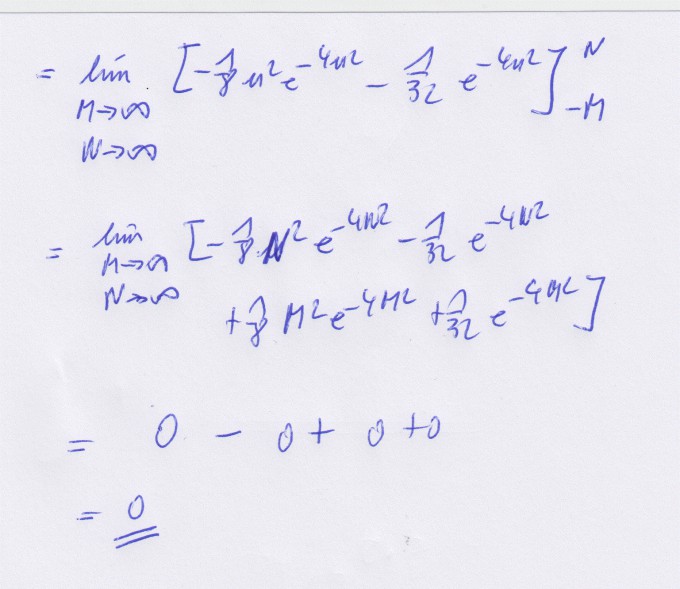 = lim [-1/8 u² e^-4u² - 1/32 e^-4u²]^N_-M
M→∞
N→∞
= lim [-1/8 N² e^-4N² - 1/32 e^-4N²
M→∞
N→∞
+1/8 M² e^-4M² + 1/32 e^-4M²]
= 0 - 0 + 0 + 0
= 0